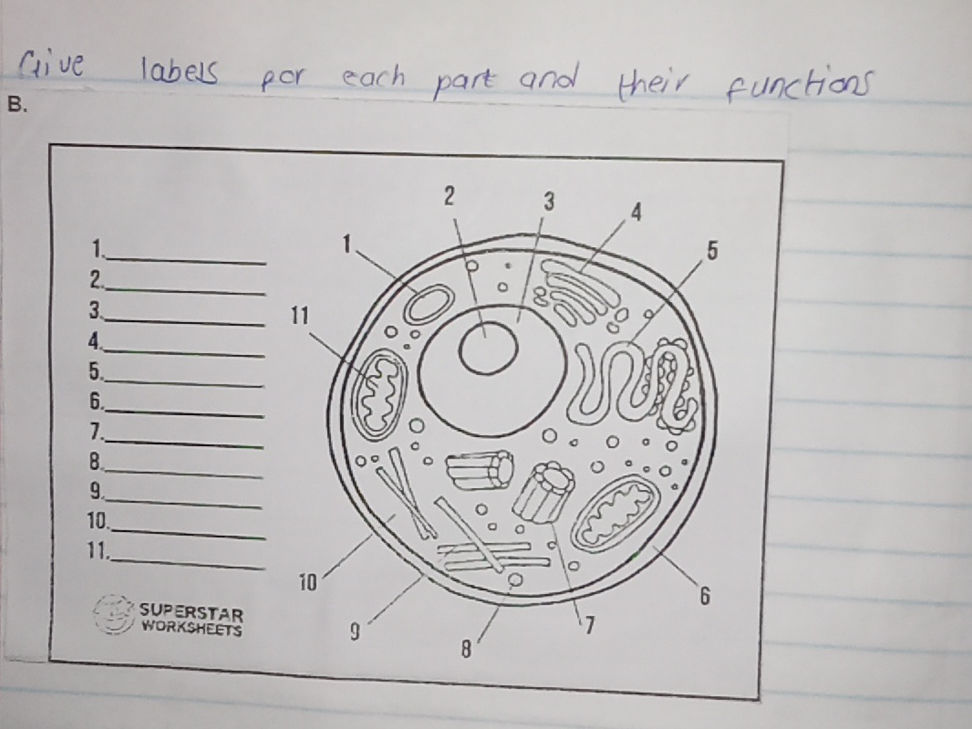 Give labels for each part and their functions
B.
2
3
4
1
5
1.
2.
3.
11
4.
5.
6.
7.
8.
9.
10.
11.
10
6
9
7
8
SUPERSTAR
WORKSHEETS